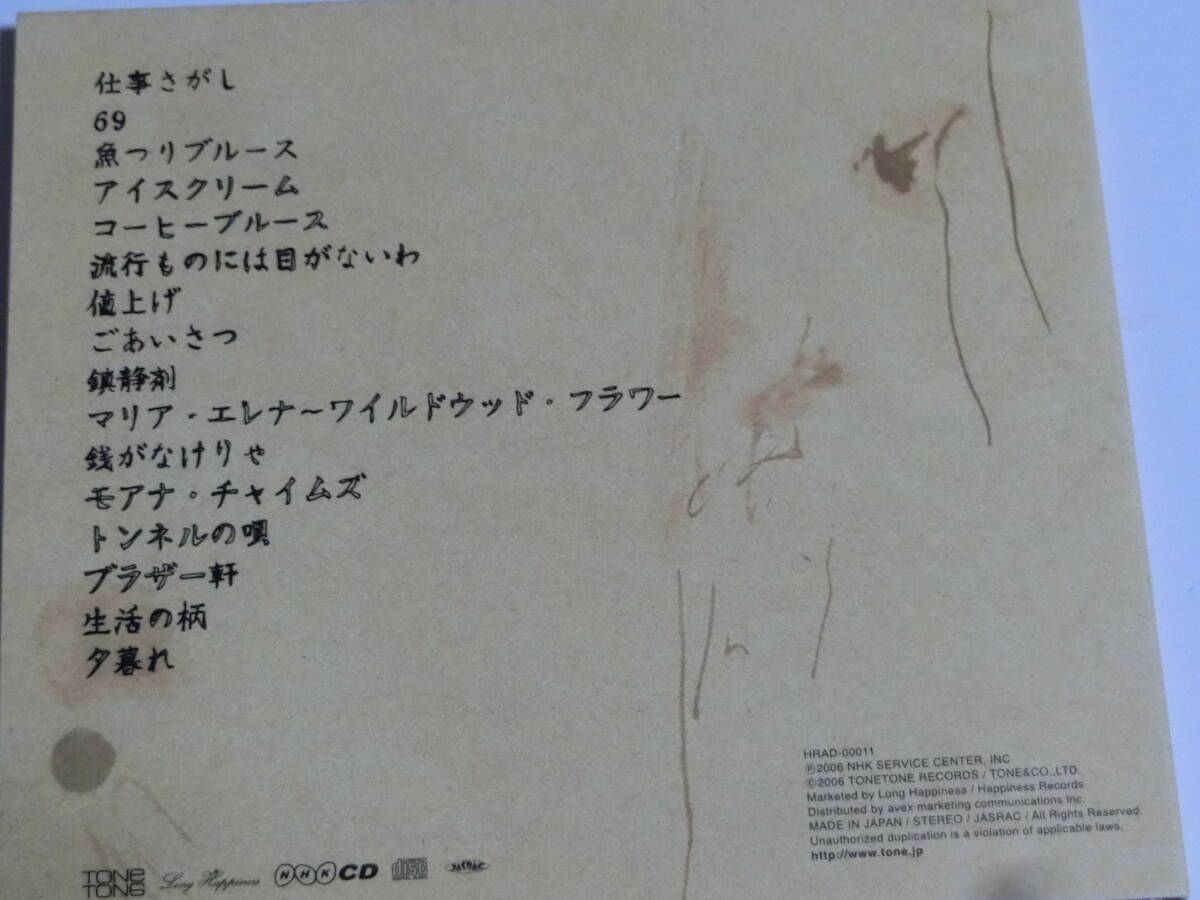 仕事さがし
69
魚つりブルース
アイスクリーム
コーヒーブルース
流行ものには目がないわ
値上げ
ごあいさつ
鎮静剤
マリア・エレナ～ワイルドウッド・フラワー
銭がなけりゃ
モアナ・チャイムズ
トンネルの唄
ブラザー軒
生活の柄
夕暮れ
HRAD-00011
℗2006 NHK SERVICE CENTER, INC
©2006 TONETONE RECORDS / TONE&CO.,LTD.
Marketed by Long Happiness / Happiness Records
Distributed by avex marketing communications Inc.
MADE IN JAPAN / STEREO / JASRAC / All Rights Reserved.
Unauthorized duplication is a violation of applicable laws.
http://www.tone.jp
TONE
TONG
Long Happiness
NHK CD
disc
JASRAC